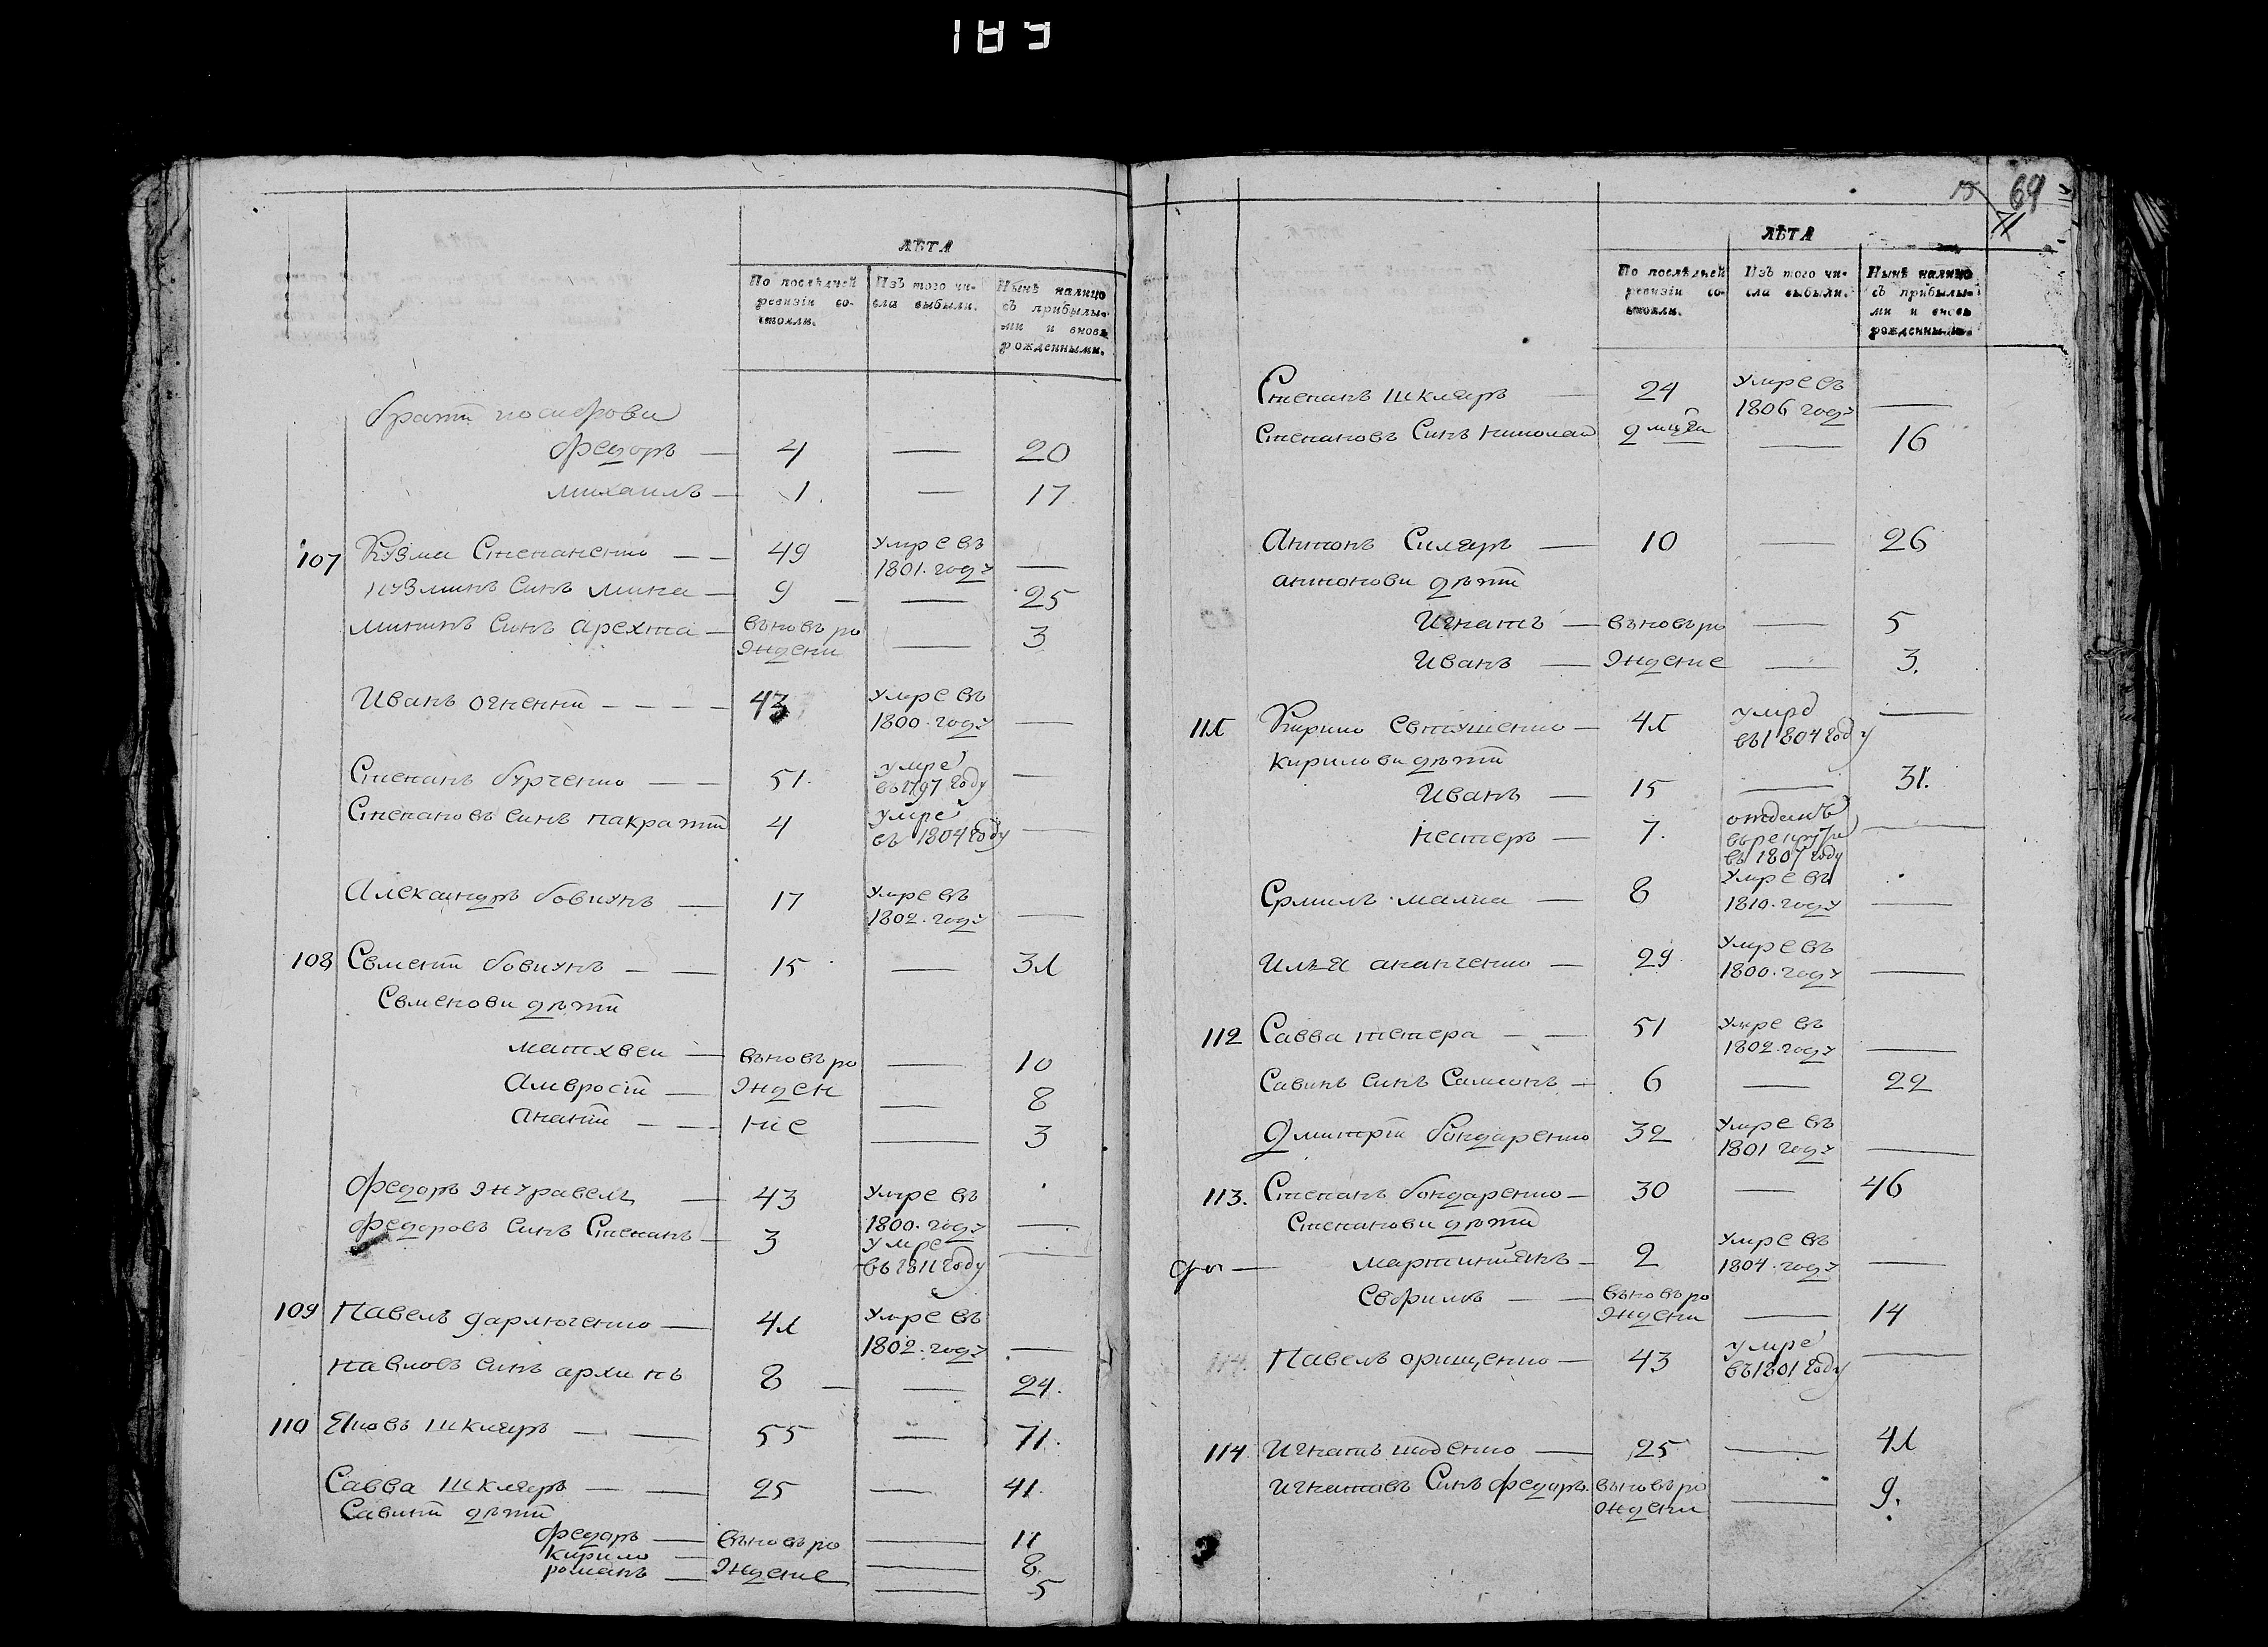 189
ЛѢТА
По послѣдней ревизіи состояли.
Изъ того числа выбыли.
Нынѣ налицо съ прибылыми и вновь рожденными.
Федоръ — 4 — 20
михаилъ — 1. — 17
107 Кузма Степаненко — — 49 умре въ 1801. году —
кузминъ Синъ мина — 9 — — 25
мининъ Синъ Арехта — въновъ рожденни — 3
Иванъ — — — — 43 умре въ 1800. году —
Степанъ бурченко — — 51. умре въ 1797 году —
Степановъ синъ пакратій 4 умре въ 1804 году —
Александръ бовкунъ — 17 умре въ 1802. году —
108 Семенъ бовкунъ — — 15 — 31
Семенови дѣти
матхвей — въновъ ро — 10
Амвросій — жден — 8
Ананій — — ніе — 3
Федоръ журавель — 43 умре въ 1800. году —
Федоровъ Синъ Степанъ — 3 умре въ 1811 году —
109 Павелъ дармогенко — 41 умре въ 1802. году —
павловъ синъ архипъ 8 — — 24.
110 Яковъ шкляръ — — 55 — 71.
Савва шкляръ — — 25 — 41.
Савини дѣти
Федоръ — въновъ ро — 11
кирило — — 8.
романъ — ждение — 5
69
71
ЛѢТА
По послѣдней ревизіи состояли.
Изъ того числа выбыли.
Нынѣ налицо съ прибылыми и вновь рожденными.
Степанъ шкляръ — 24 умре въ 1806 году —
Степановъ Синъ николай — 16
Антонъ Скляръ — 10 — 26
антонови дѣти
Игнатъ — въновъ ро — 5
Иванъ — ждение — 3.
111 Кирило Евтушенко — 41 умре въ 1804 году —
кирилови дѣти
Иванъ — 15 — 31.
нестеръ — 7. отданъ в рекруты въ 1807 году —
8 умре въ 1810. году —
Илья ананченко — 29 умре въ 1800. году —
112 Савва тетера — — 51 умре въ 1802. году —
Савинъ синъ Самсонъ — 6 — 22
Дмитрій бондаренко 32 умре въ 1801 году —
113. Степанъ бондаренко — 30 — 46
Степанови дѣти
мартиніянъ — 2 умре въ 1804. году —
Евфимъ — — въновъ рожденни — 14
114. Павелъ орищенко — 43 умре въ 1801 году —
114 Игнатъ — 25 — 41
игнатовъ Синъ Федоръ. въновъ рожденни — 9.